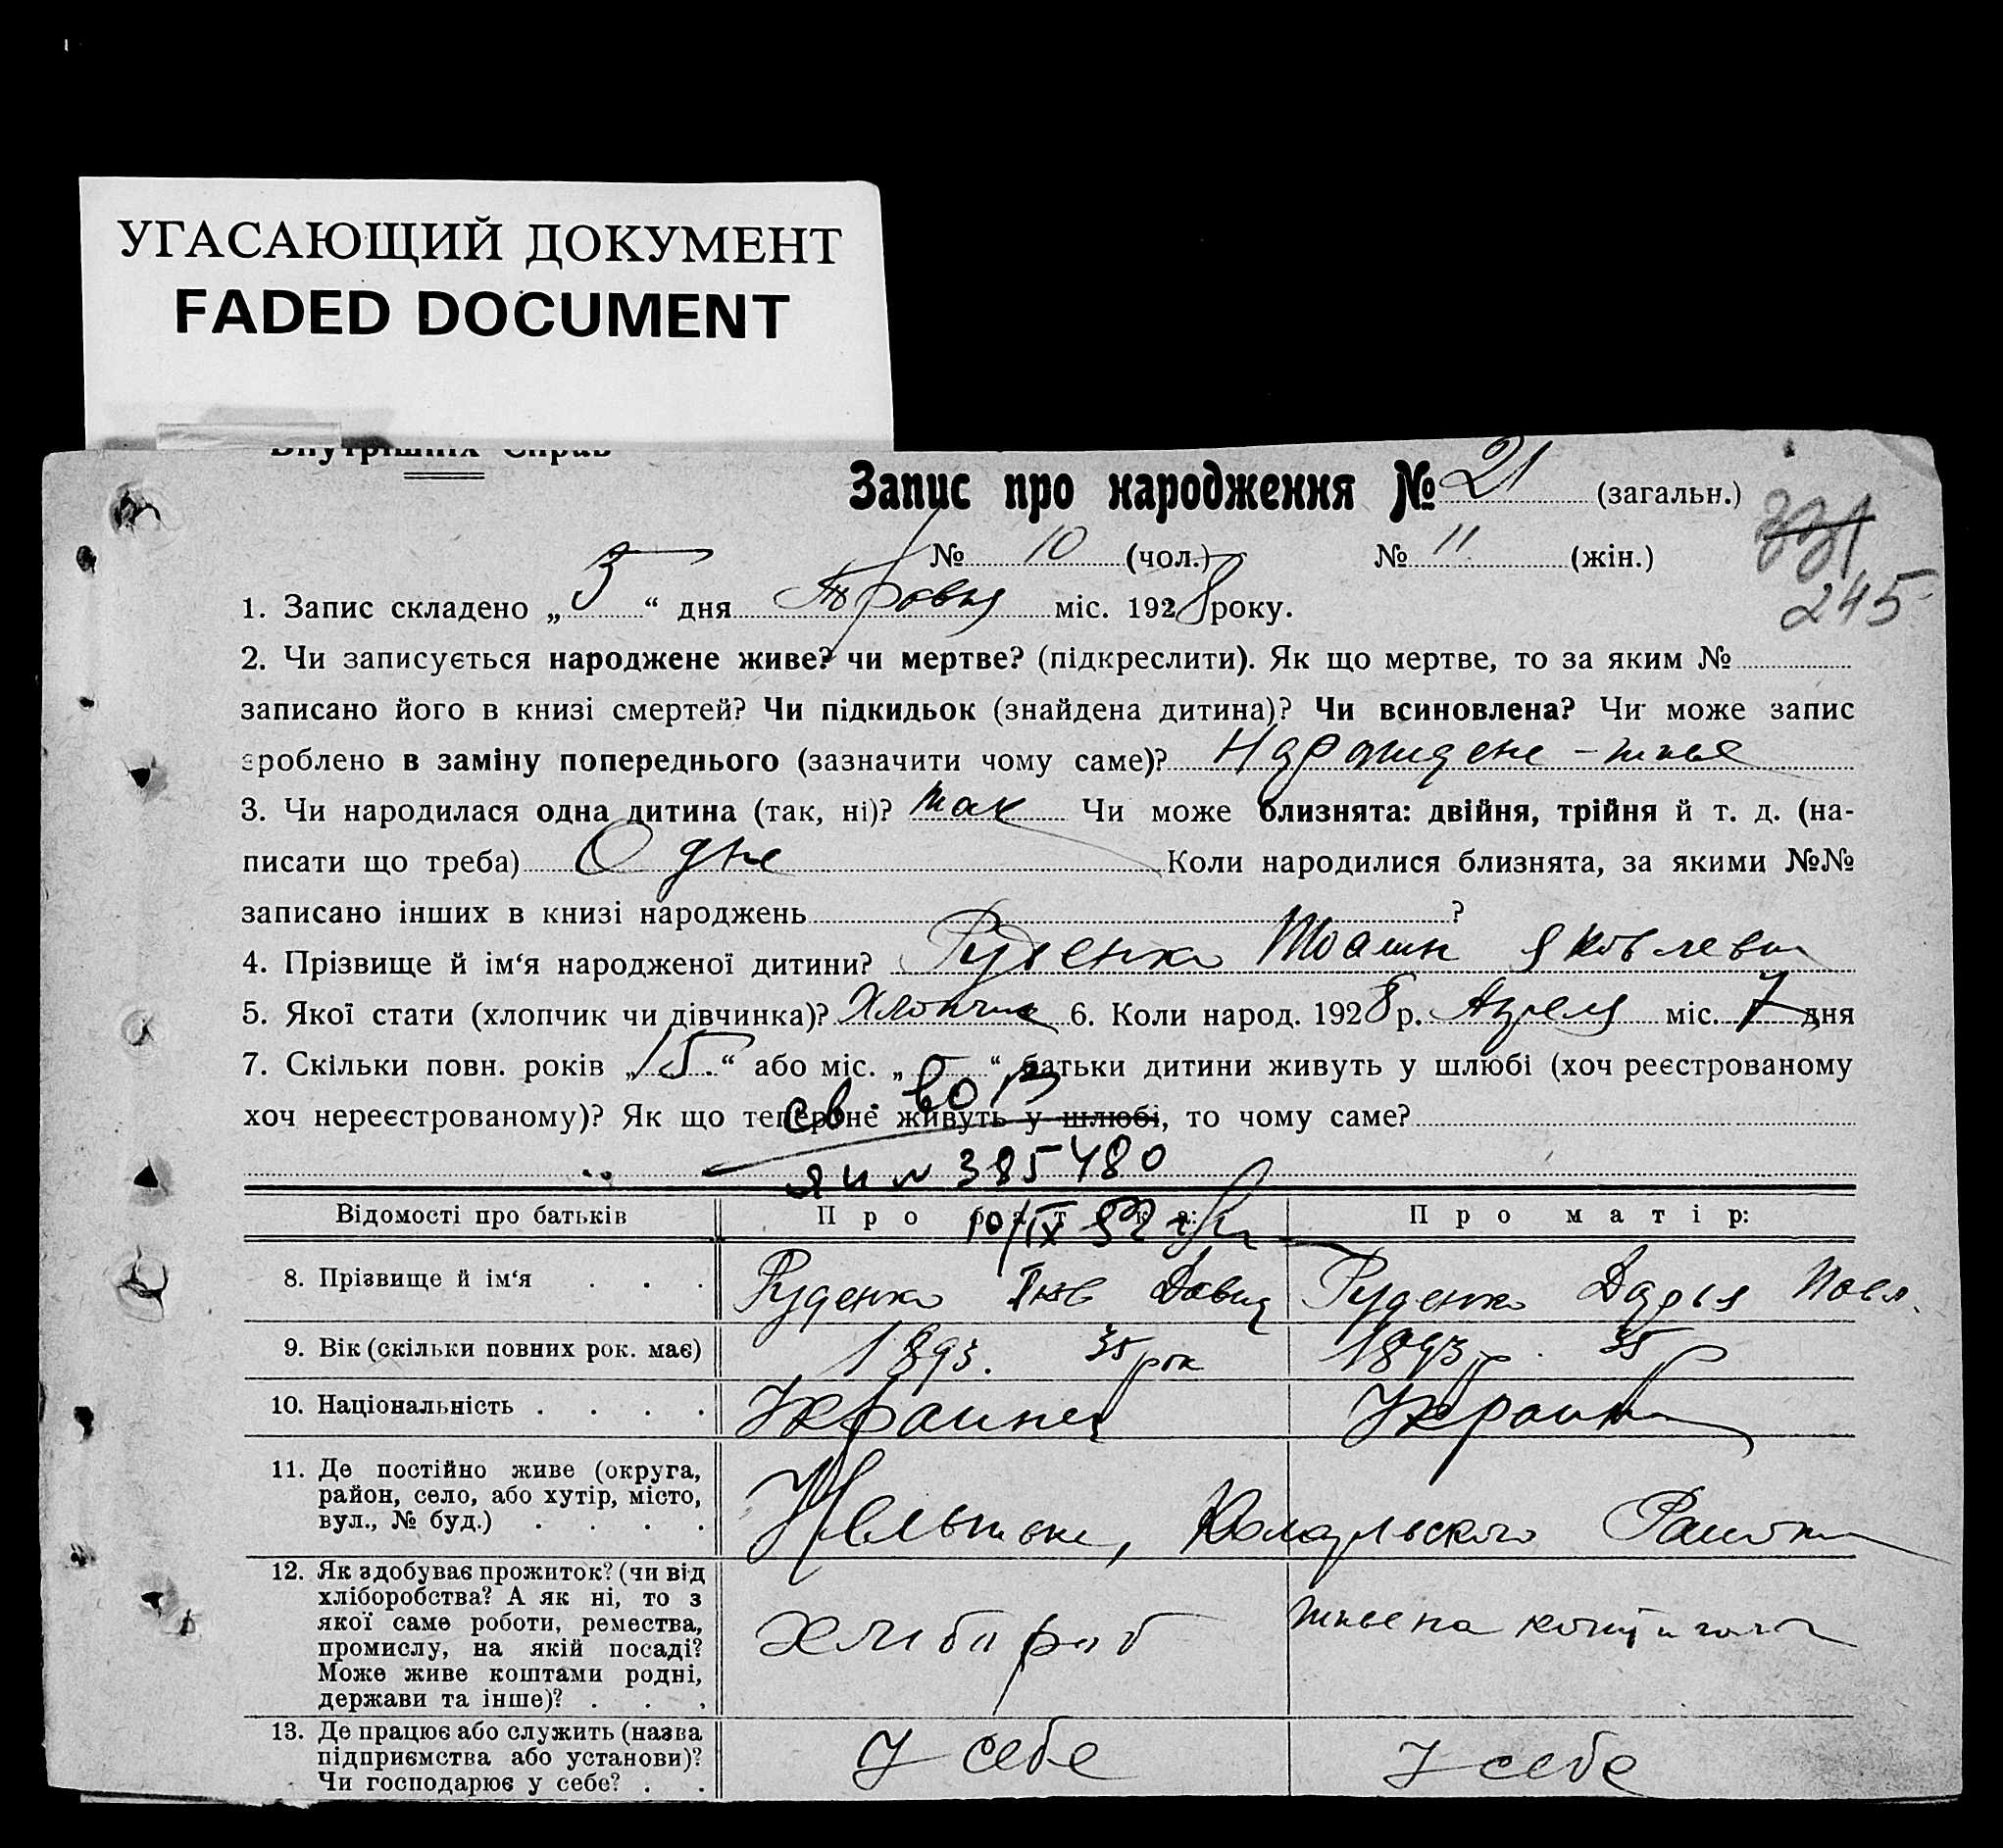 УГАСАЮЩИЙ ДОКУМЕНТ
FADED DOCUMENT
Внутрішніх Справ
Запис про народження № 21 (загальн.)
331
№ 10 (чол.) № 11 (жін.)
245
1. Запис складено „ 5 “ дня Травня міс. 1928 року.
2. Чи записується народжене живе? чи мертве? (підкреслити). Як що мертве, то за яким №
записано його в книзі смертей? Чи підкидьок (знайдена дитина)? Чи всиновлена? Чи може запис
зроблено в заміну попереднього (зазначити чому саме)?
3. Чи народилася одна дитина (так, ні)? так Чи може близнята: двійня, трійня й т. д. (на-
писати що треба) Одне Коли народилися близнята, за якими №№
записано інших в книзі народжень ?
4. Прізвище й ім‘я народженої дитини? Руденко
5. Якої стати (хлопчик чи дівчинка)? Хлопчик 6. Коли народ. 1928 р. Апреля міс. 7 дня
7. Скільки повн. років „ 15. “ або міс. „ “ батьки дитини живуть у шлюбі (хоч реєстрованому
св. во
хоч нереєстрованому)? Як що тепер не живуть у шлюбі, то чому саме?
ЯИ № 385480
Відомості про батьків Про батька: Про матір:
10/IX 52 г
8. Прізвище й ім‘я . . . Руденко Яків Давид Руденко Дарья Павл.
9. Вік (скільки повних рок. має) 1893. 35 рок 1893 р. 35
10. Національність . . . . Украинец
11. Де постійно живе (округа,
район, село, або хутір, місто,
вул., № буд.) . . . .
12. Як здобуває прожиток? (чи від
хліборобства? А як ні, то з
якої саме роботи, ремества,
промислу, на якій посаді?
Може живе коштами родні,
держави та інше)? . . .
Хлібороб
13. Де працює або служить (назва
підприємства або установи)?
Чи господарює у себе? . .
У себе У себе